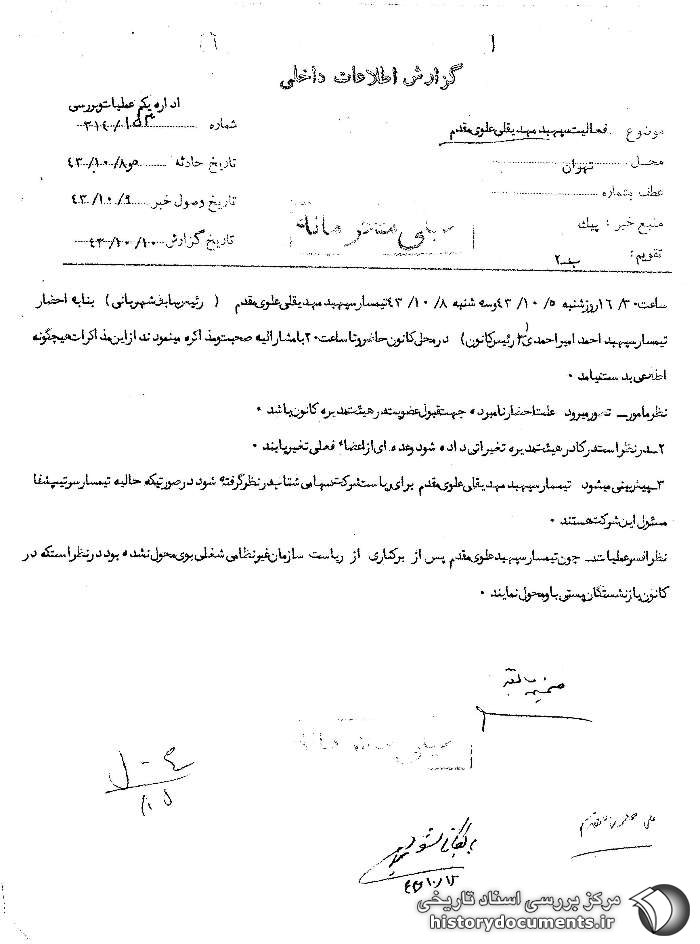 گزارش اطلاعات داخلی
اداره یکم عملیات و بررسی
موضوع فعالیت سپهبد مهدیقلی علوی مقدم
شماره ۳۱۴/۱۵۳
محل تهران
تاریخ حادثه ۵و۸/۱۰/۴۳
عطف بشماره
تاریخ وصول خبر ۹/۱۰/۴۳
منبع خبر : پیک
تاریخ گزارش ۱۰/۱۰/۴۳
تقویم : ب-۲
خیلی محرمانه
ساعت ۱۶/۳۰ روز شنبه ۵/۱۰/۴۳ و سه شنبه ۸/۱۰/۴۳ تیمسار سپهبد مهدیقلی علوی مقدم ( رئیس سابق شهربانی ) بنا به احضار
تیمسار سپهبد احمد امیراحمدی ( رئیس کانون ) در محل کانون حاضر و تا ساعت ۲۰ با مشارالیه صحبت و مذاکره مینمودند از این مذاکرات هیچگونه
اطلاعی بدست نیامد .
نظر مامور ـ تصور میرود علت احضار نامبرده جهت قبول عضویت در هیئت مدیره کانون باشد .
۲ـ در نظر است در کادر هیئت مدیره تغییراتی داده شود و عده ای از اعضاء فعلی تغییر یابند .
۳ـ پیش بینی میشود تیمسار سپهبد مهدیقلی علوی مقدم برای ریاست شرکت سهامی شتاب در نظر گرفته شود در صورتیکه حالیه تیمسار سرتیپ شفا
مسئول این شرکت هستند .
نظر افسر عملیات ـ چون تیمسار سپهبد علوی مقدم پس از برکناری از ریاست سازمان غیر نظامی شغلی بوی محول نشده بود در نظر است که در
کانون بازنشستگان پستی باو محول نمایند .
ضمیمه سابقه
خیلی محرمانه
بایگانی شود
۱۵/۱۰/۴۳
مرکز بررسی اسناد تاریخی
historydocuments.ir